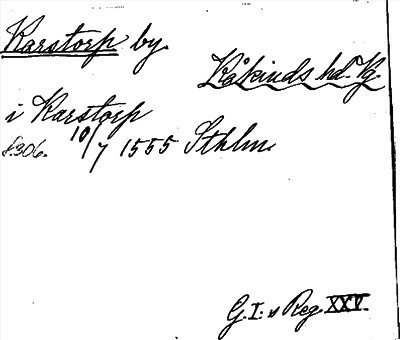 Karstorp by.
Kåkinds hd. Vg.
i Karstorp
f.306. 10/7 1555 Sthlm.
G.I:s Reg. XXV.